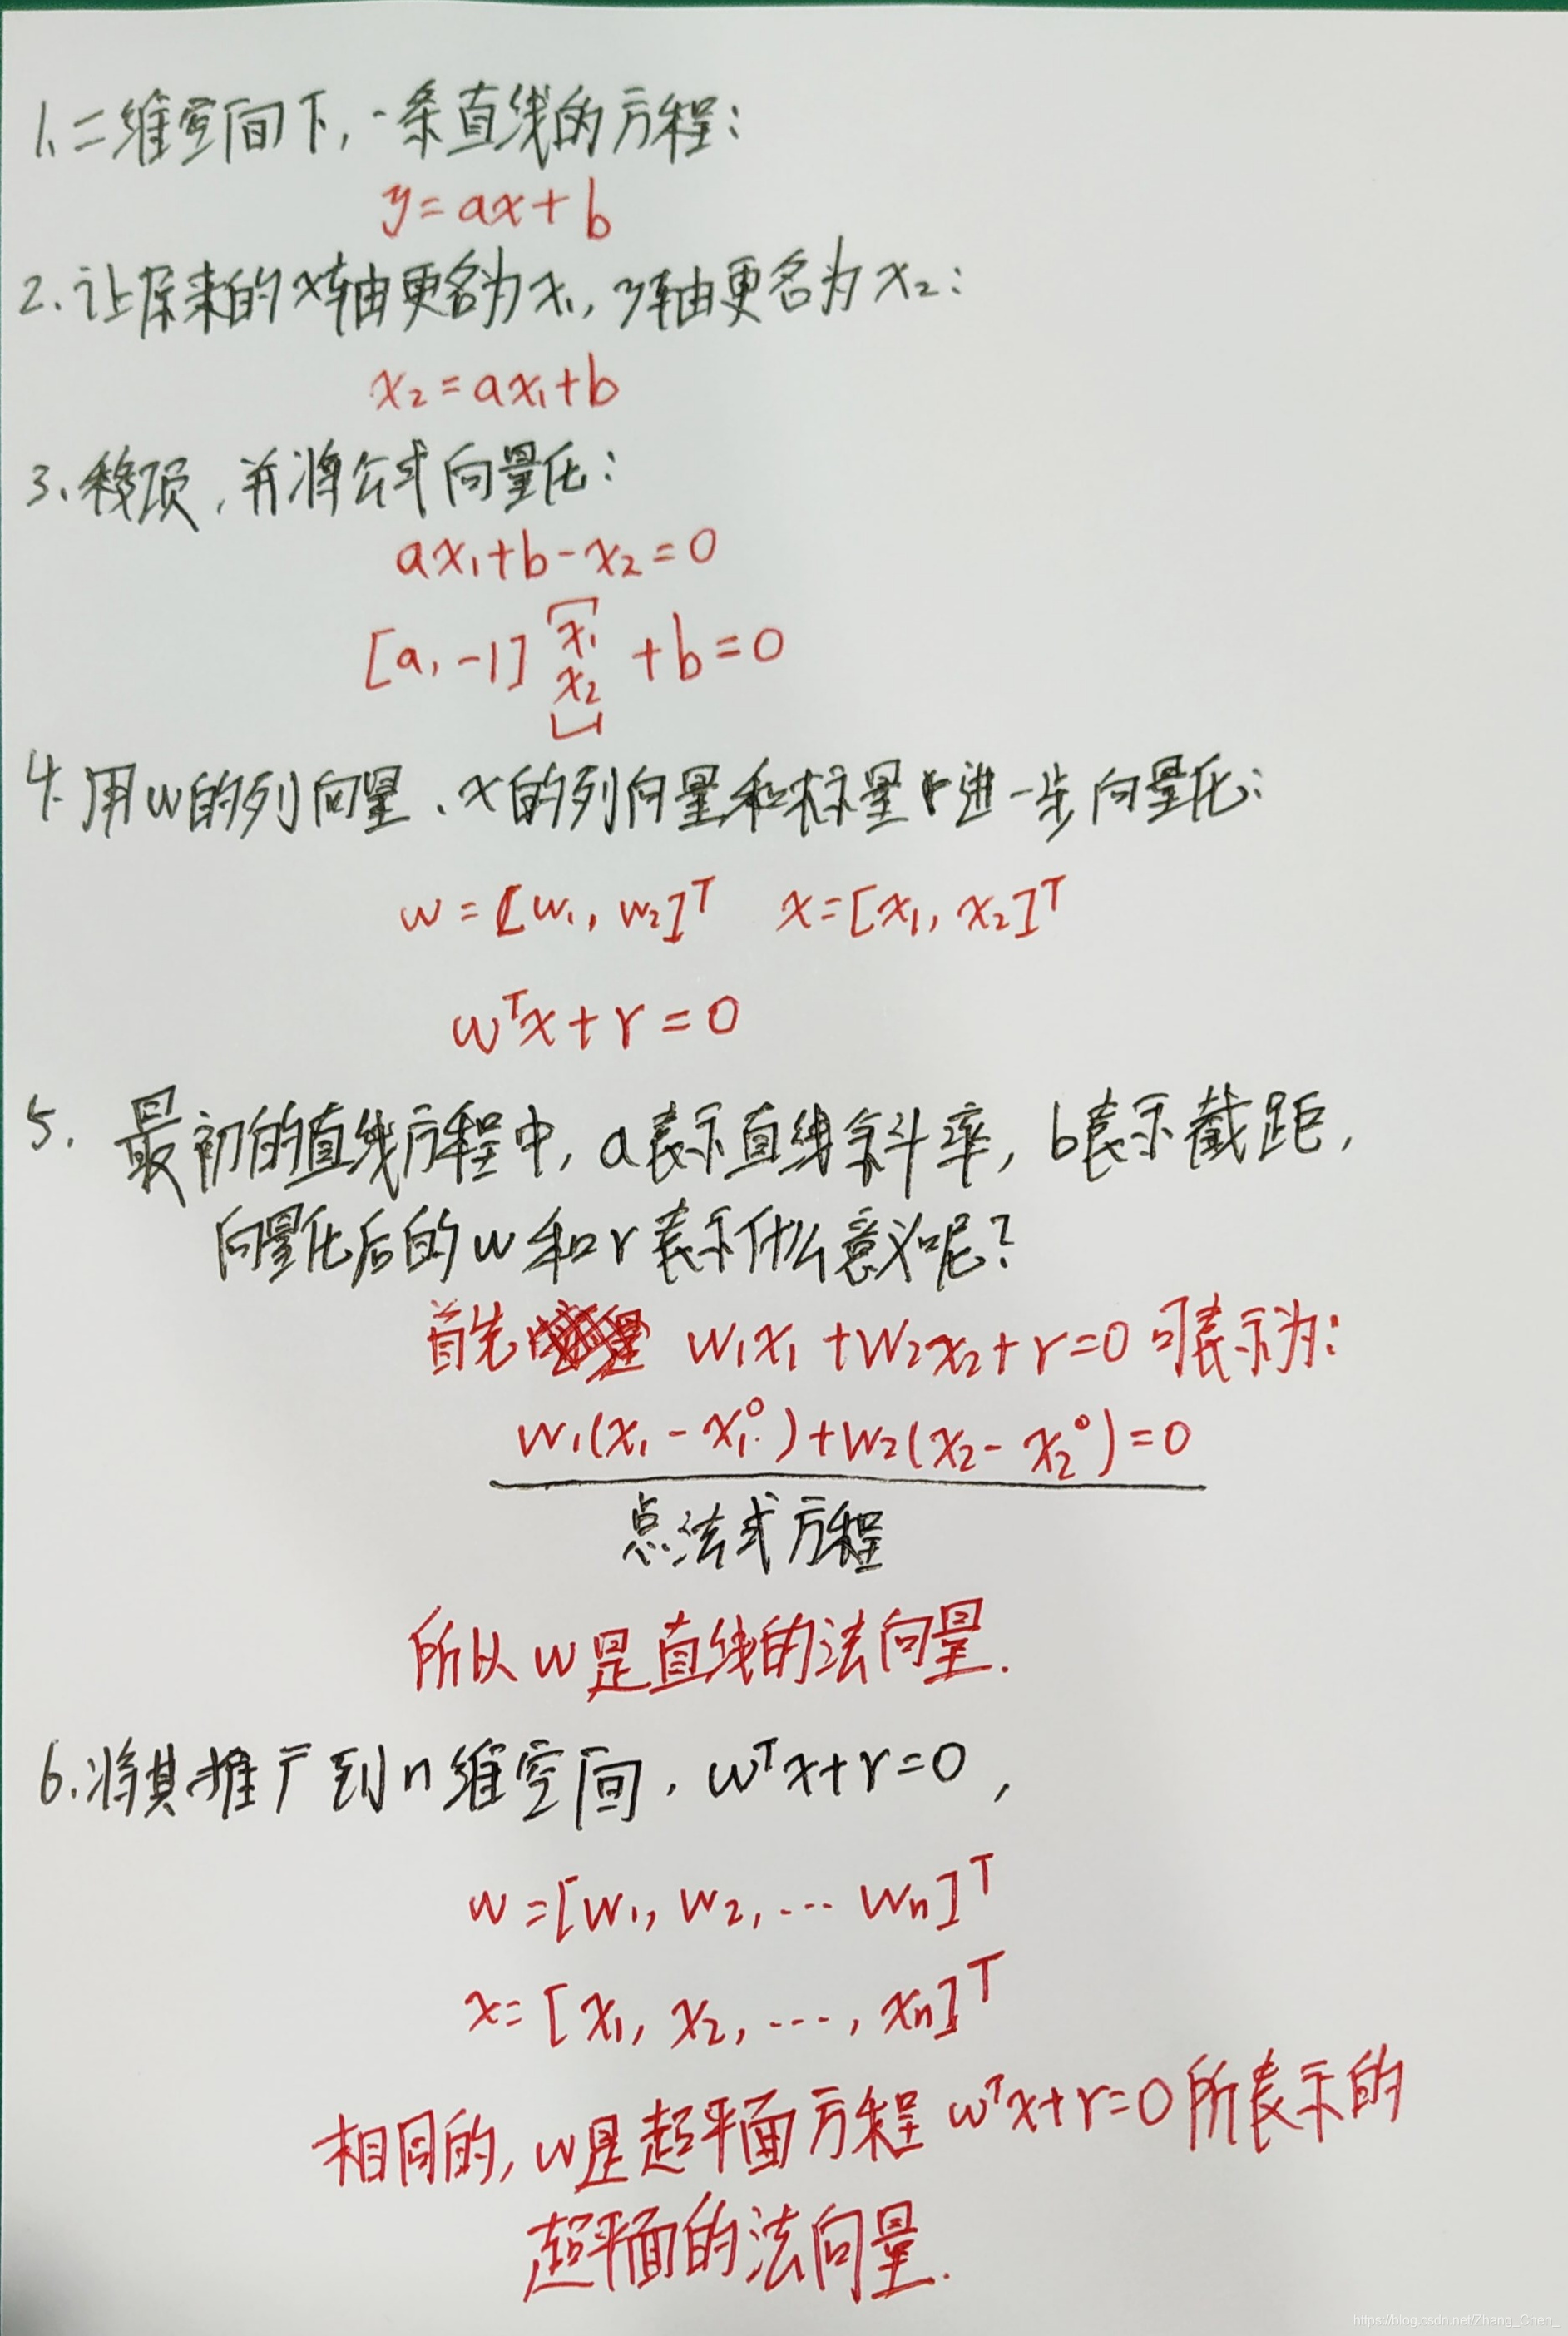 1、二维空间下,一条直线的方程:
y=ax+b
2.让原来的x轴更名为x₁,y轴更名为x₂:
x₂=ax₁+b
3、移项,并将公式向量化:
ax₁+b-x₂=0
[a,-1][x₁
x₂]+b=0
4.用w的列向量、x的列向量和标量r进一步向量化:
w=[w₁,w₂]ᵀ x=[x₁,x₂]ᵀ
wᵀx+r=0
5.最初的直线方程中,a表示直线斜率,b表示截距,
向量化后的w和r表示什么意义呢?
首先 w₁x₁+w₂x₂+r=0可表示为:
w₁(x₁-x₁⁰)+w₂(x₂-x₂⁰)=0
点法式方程
所以w是直线的法向量.
6.将其推广到n维空间,wᵀx+r=0,
w=[w₁,w₂,...wₙ]ᵀ
x=[x₁,x₂,...,xₙ]ᵀ
相同的,w是超平面方程wᵀx+r=0所表示的
超平面的法向量.
https://blog.csdn.net/Zhang_Chen_